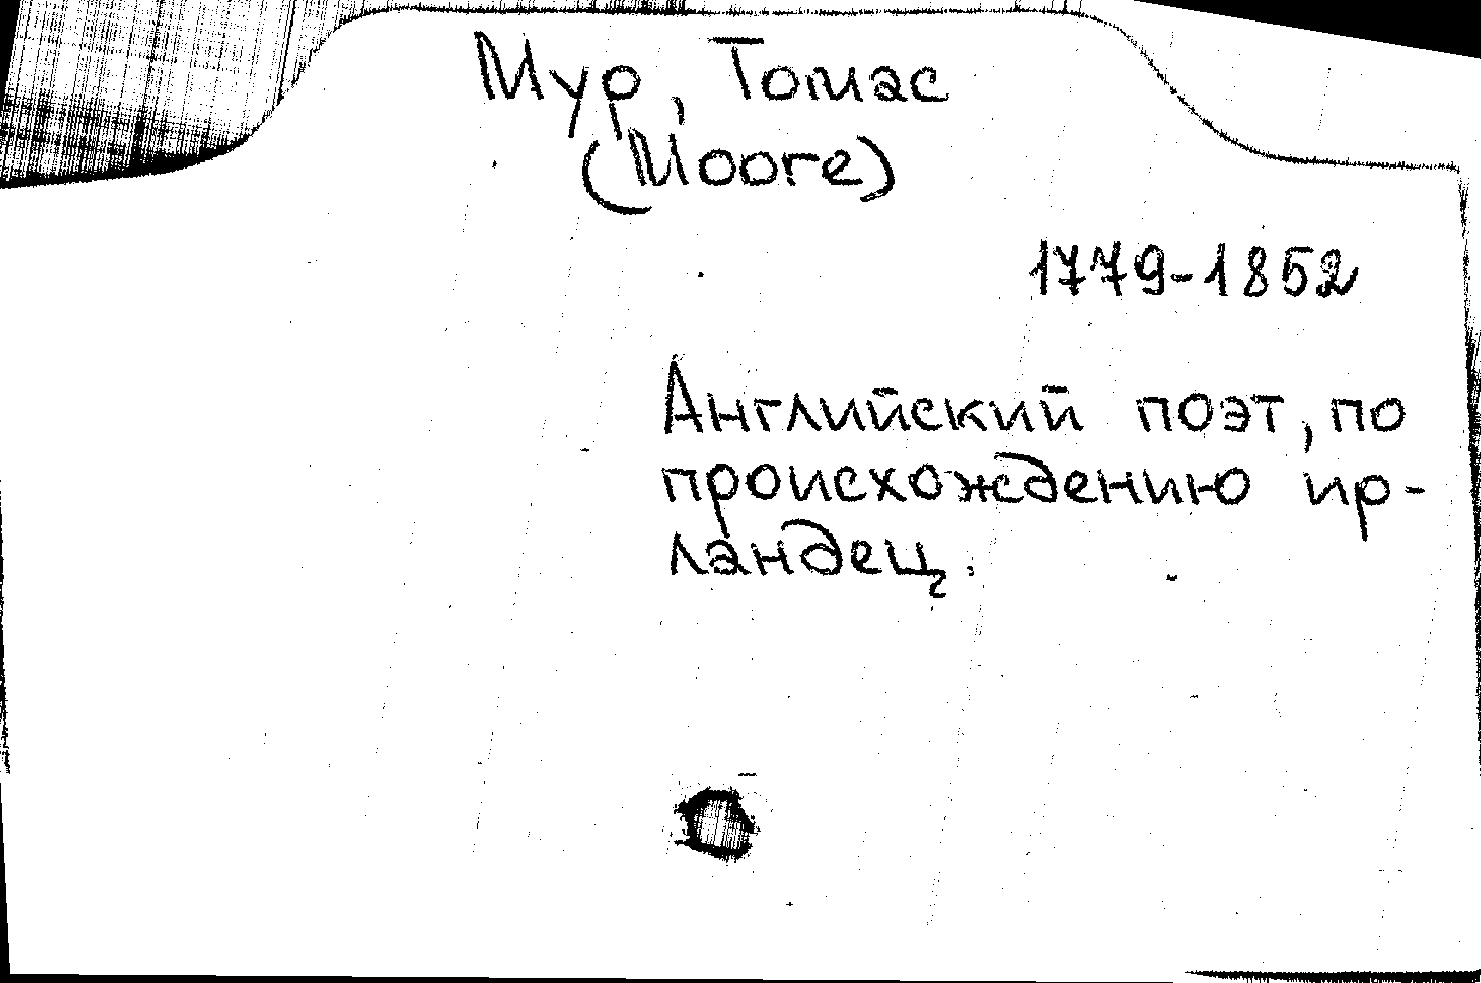 Мур, Томас
(Moore)
1779-1852
Английский поэт, по
происхождению ир-
ландец.